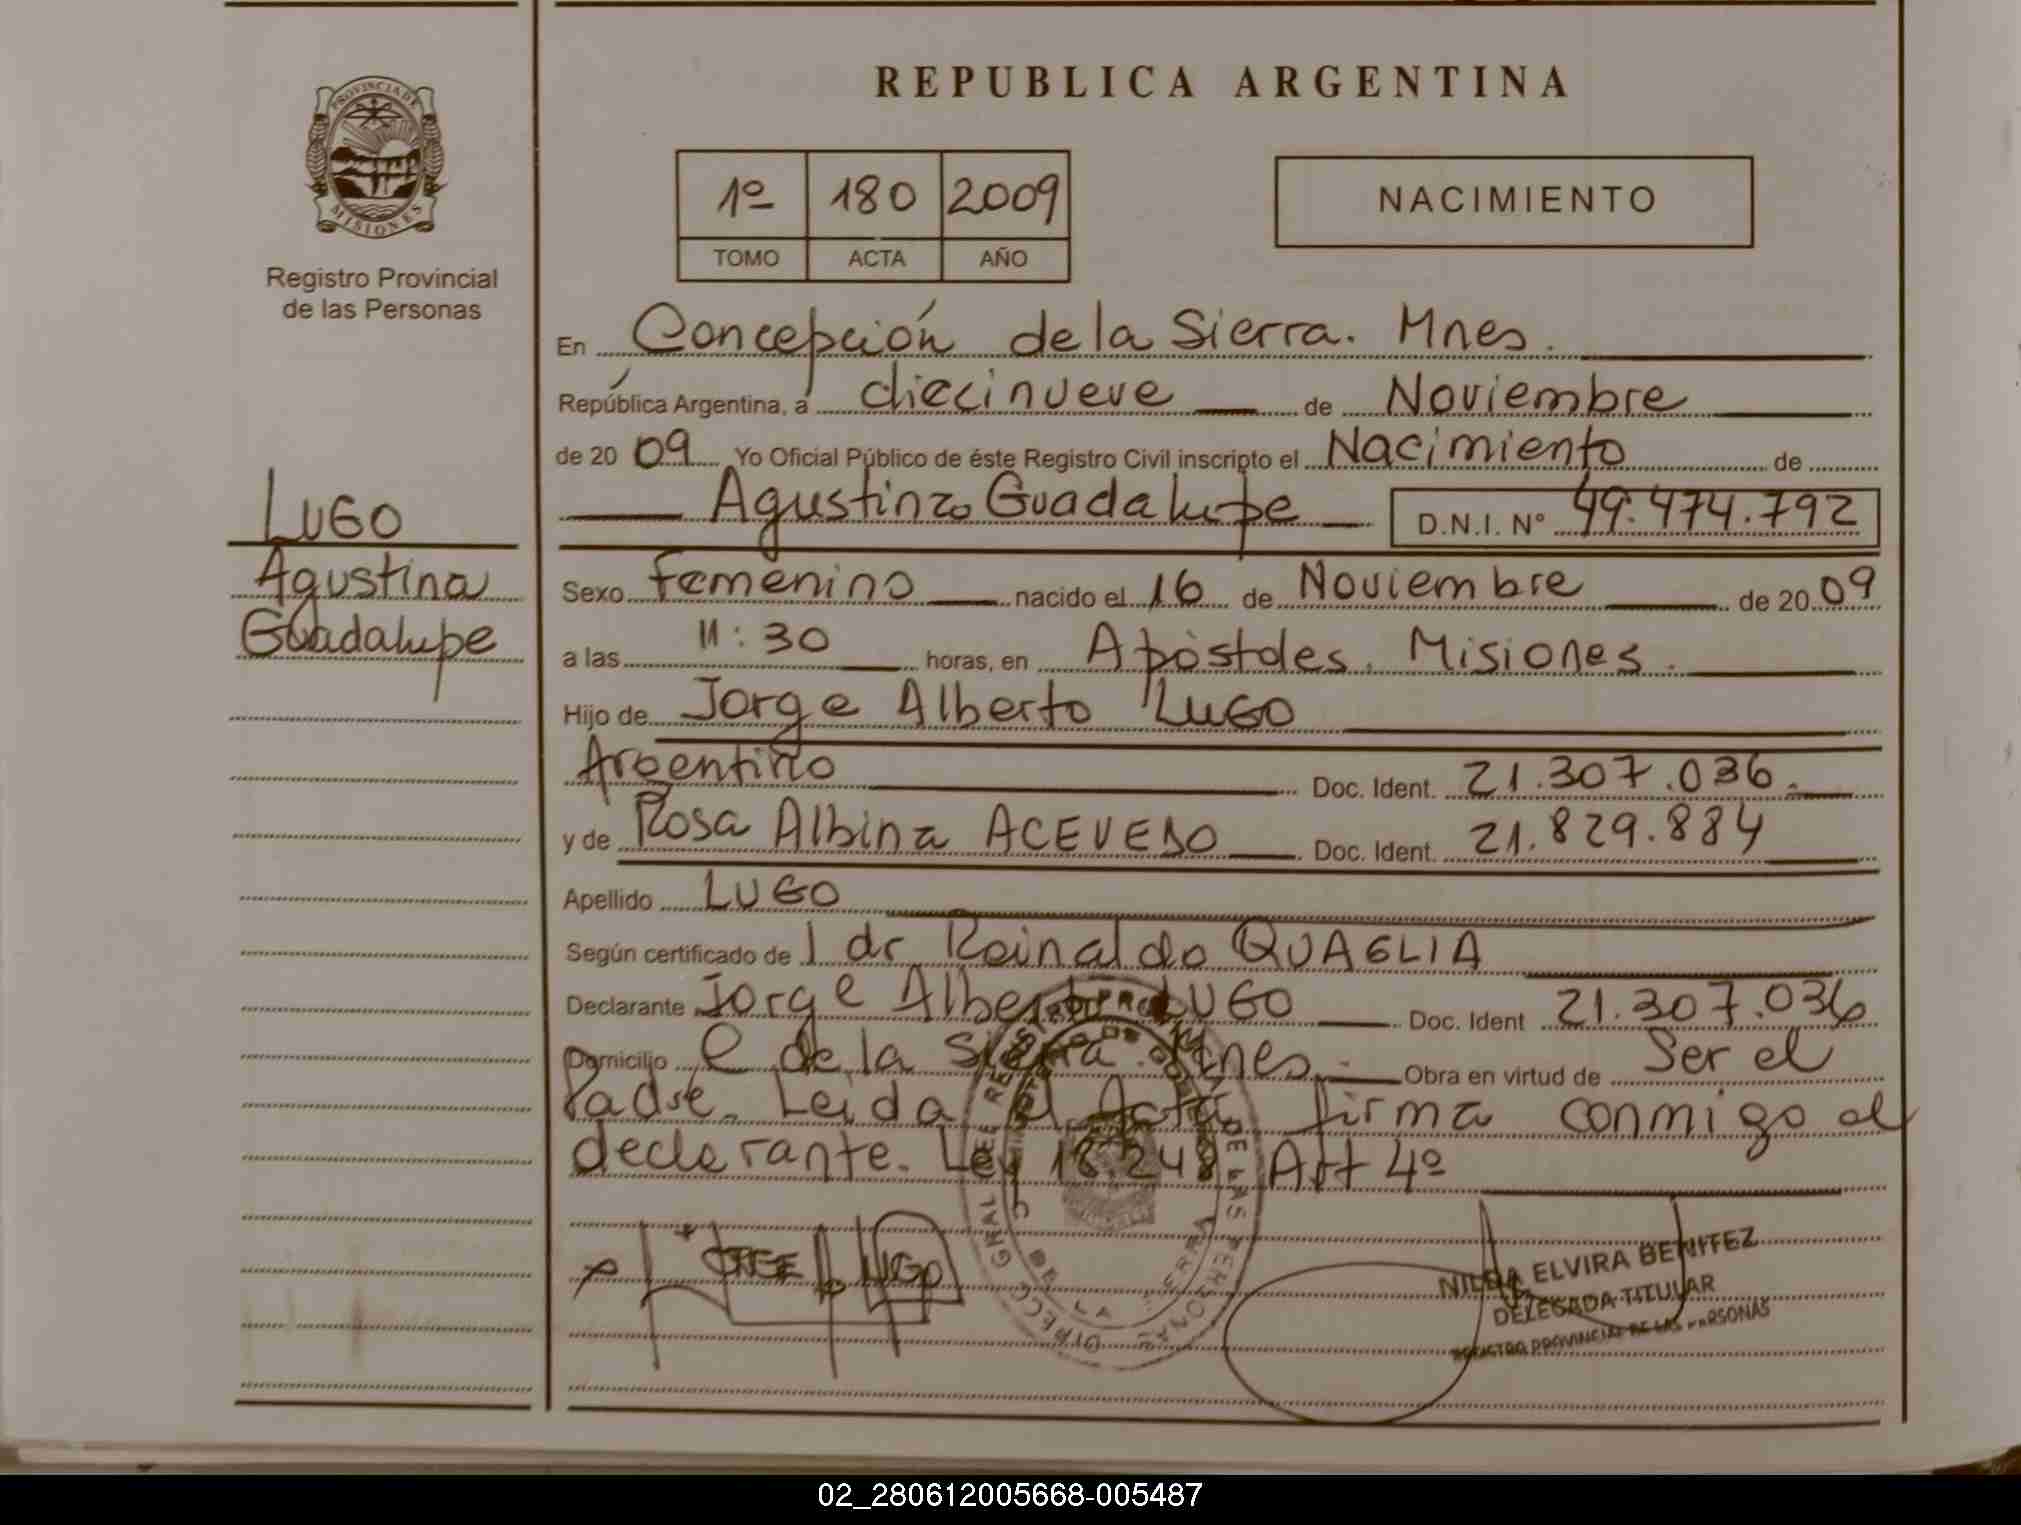 REPUBLICA ARGENTINA
PROVINCIA DE
MISIONES
Registro Provincial
de las Personas
1º 180 2009
TOMO ACTA AÑO
NACIMIENTO
LUGO
Agustina
Guadalupe
En Concepción de la Sierra. Mnes.
República Argentina, a diecinueve de Noviembre
de 2009 Yo Oficial Público de éste Registro Civil inscripto el Nacimiento de
Agustina Guadalupe D.N.I. Nº 49.474.792
Sexo femenino nacido el 16 de Noviembre de 2009
a las 11:30 horas, en Apóstoles. Misiones.
Hijo de Jorge Alberto LUGO
Argentino Doc. Ident. 21.307.036.
y de Rosa Albina ACEVEDO Doc. Ident. 21.829.884
Apellido LUGO
Según certificado de l dr Reinaldo QUAGLIA
Declarante Jorge Alberto LUGO Doc. Ident 21.307.036
Domicilio C de la Sierra. Mnes. Obra en virtud de Ser el
Padre. Leida el Acta firma conmigo el
declarante. Ley 18.248 Art 4º
LUGO
NILDA ELVIRA BENITEZ
DELEGADA TITULAR
REGISTRO PROVINCIAL DE LAS PERSONAS
02_280612005668-005487